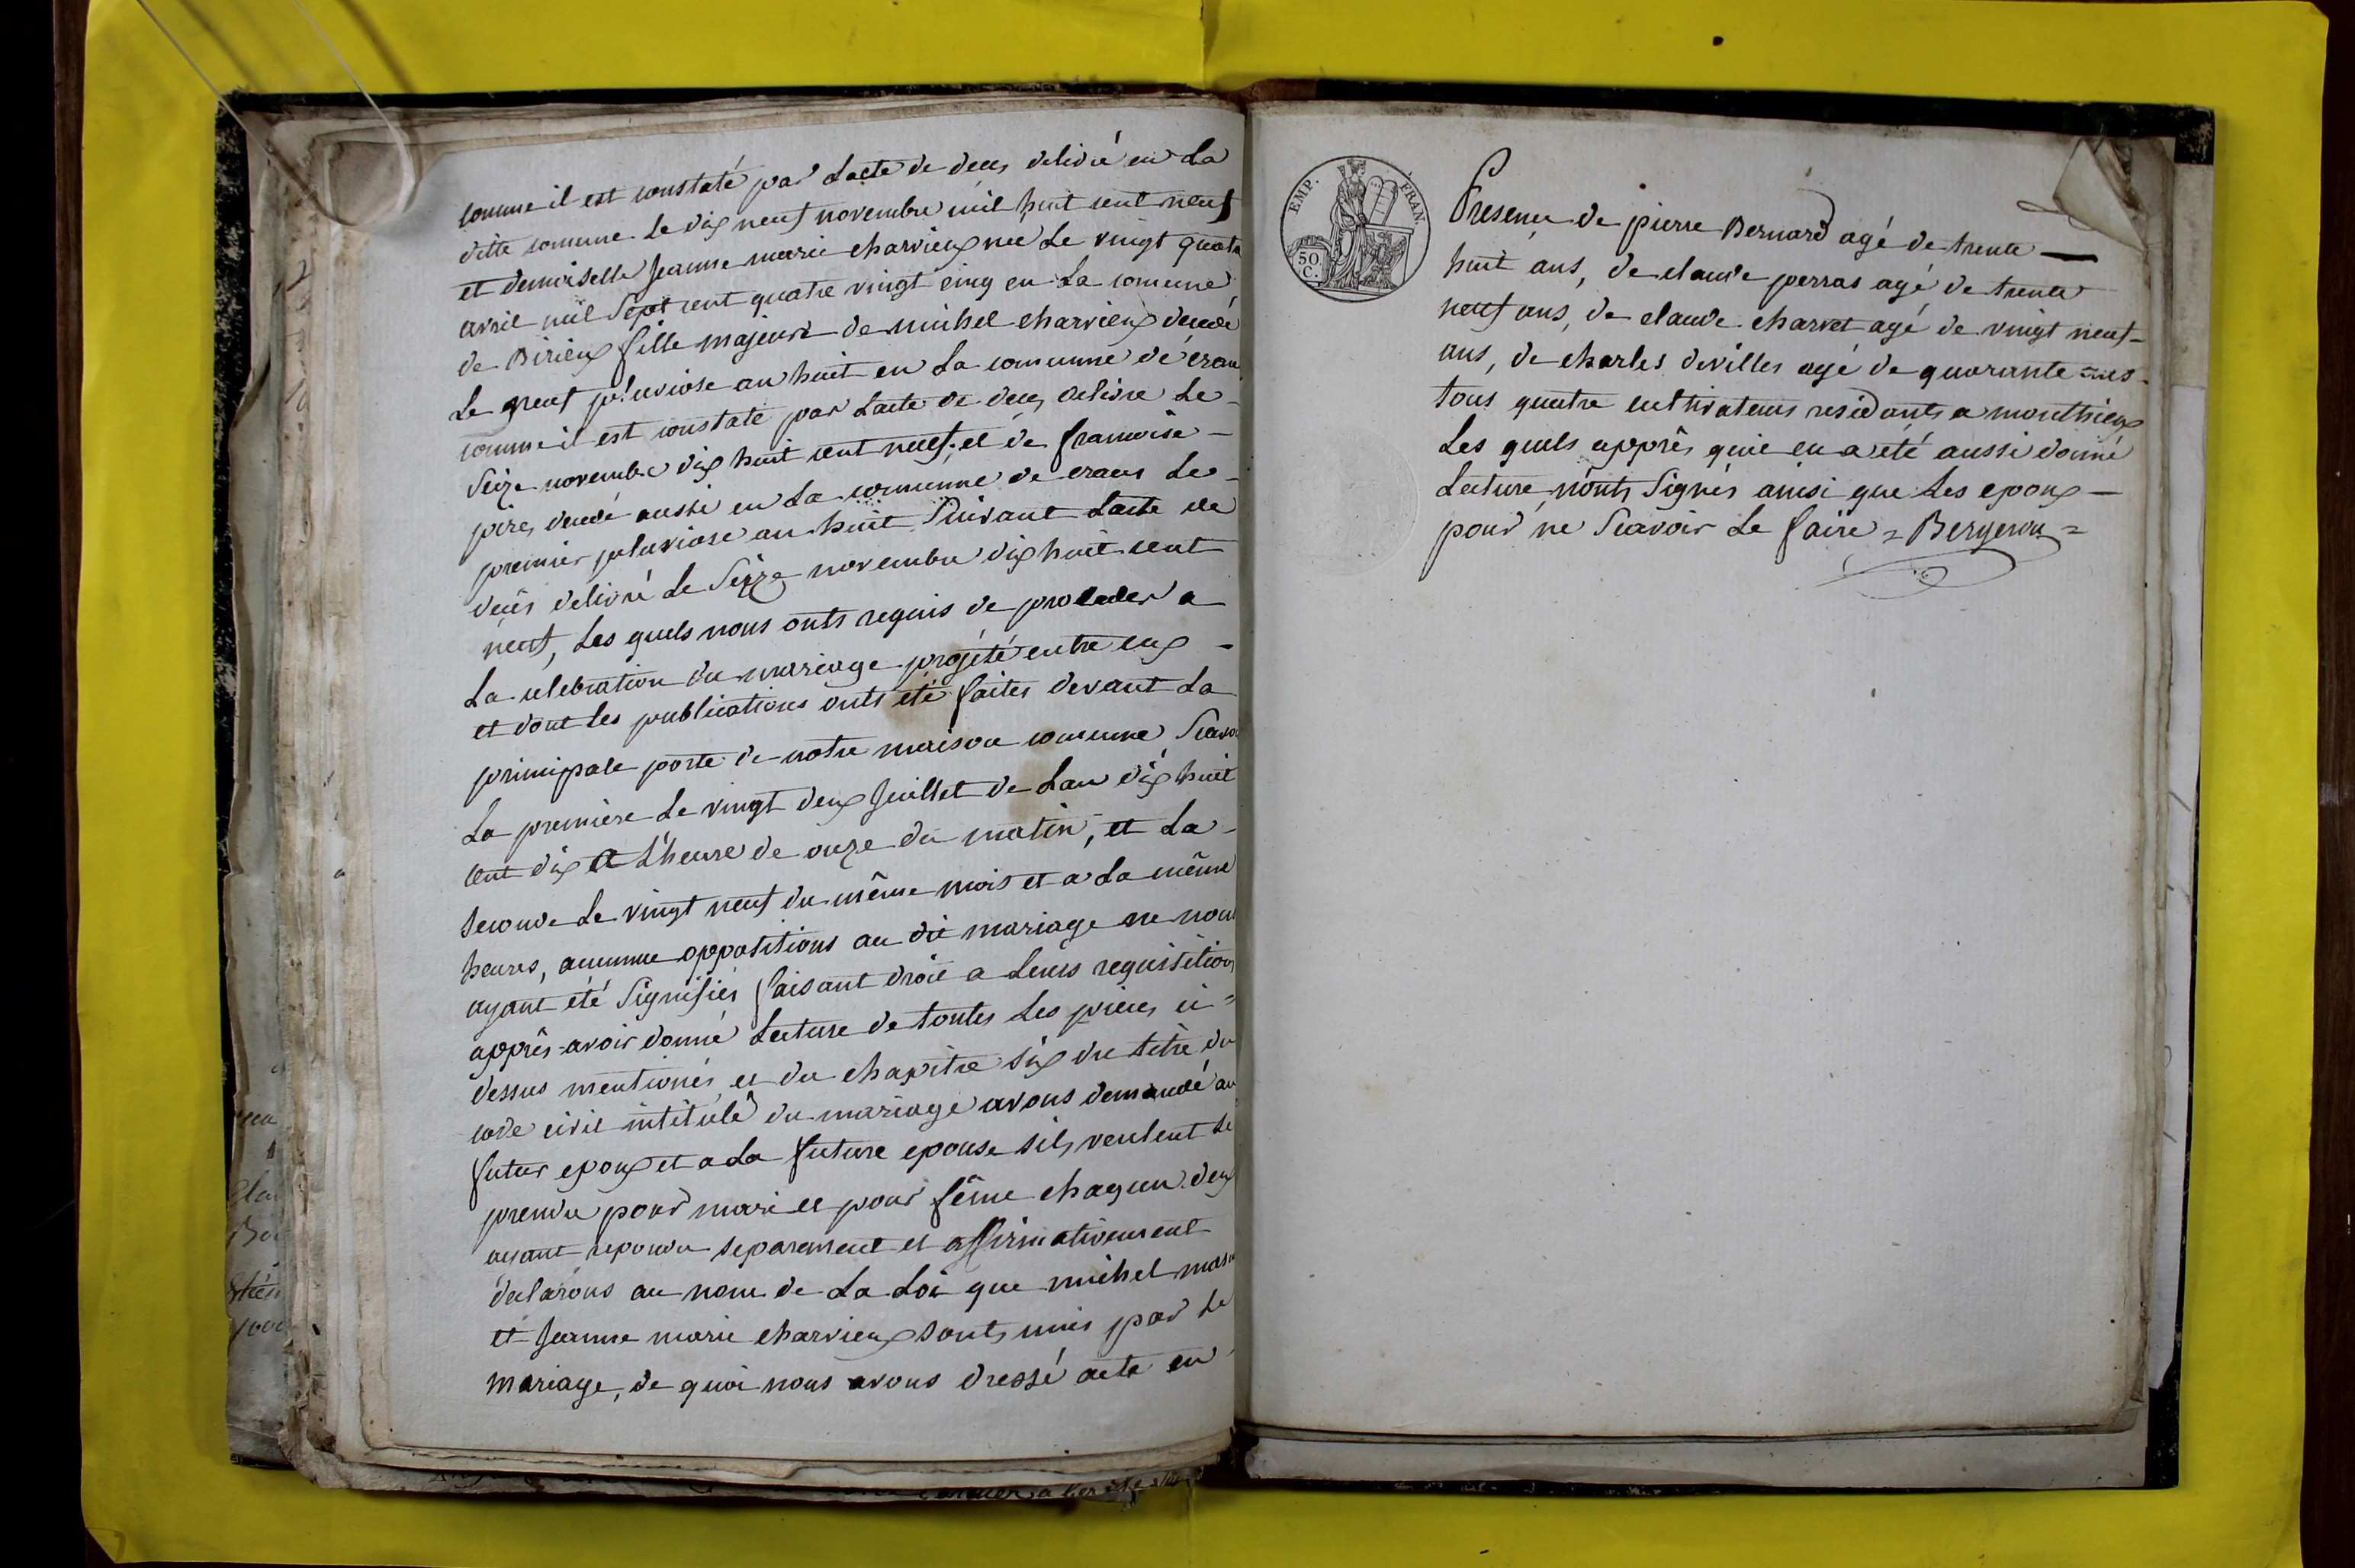 comme il est constaté par Lacte de deces delivré en La
ditte comune Le dix neuf novembre mil huit cent neuf
et demoiselle Jeanne marie charvieux née Le vingt quatre
avril mil Sept cent quatre vingt cinq en La comune
de Birieux fille majeure de michel charvieux decedé
Le neuf pluviose an huit en La comunne de crans
comme il est constaté par Lacte de deces delivré Le -
Seize novembre dix huit cent neuf, et de francoise -
pires decedé aussi en La comunne de crans Le -
premier pluviose an huit Suivant Lacte de
decès delivré Le Seize novembre dix huit cent
neuf, Les quels nous onts requis de proceder a
La celebration du mariage projété entre eux -
et dont Les publications onts été faites devant La
principale porte de notre maison comunne Scavoir
La première Le vingt deux Juillet de Lan dix huit
cent dix a L'heure de onze du matin, et La -
seconde Le vingt neuf du même mois et a La même
heures, aucunne oppositions au dit mariage ne nous
ayant été Signifiés faisant droit a Leurs requisitions
apprês avoir donné Lecture de toutes Les pieces ci =
dessus mentionés, et du chapitre Six du titre du
code civil intitulé du mariage avons demandé au
futur epoux et a La future epouse sils veulent se
prendre pour mari et pour fême chaqun deux
ayant repondu separement et affirmativement
déclarons au nom de La Loi que michel
et Jeanne marie charvieux sonts unis par Le
mariage, de quoi nous avons dressé acte en
EMP. FRAN.
50 C.
Presence de pierre Bernard agé de trente —
huit ans, de claude perras agé de trente
neuf ans, de claude charvet agé de vingt neuf -
ans, de charles devilles agé de quarante ans -
tous quatre cultivateurs residants a monthieux
Les quels apprês quil en a été aussi donné
Lecture n'onts Signés ainsi que Les epoux —
pour ne Scavoir Le faire = Bergeron =